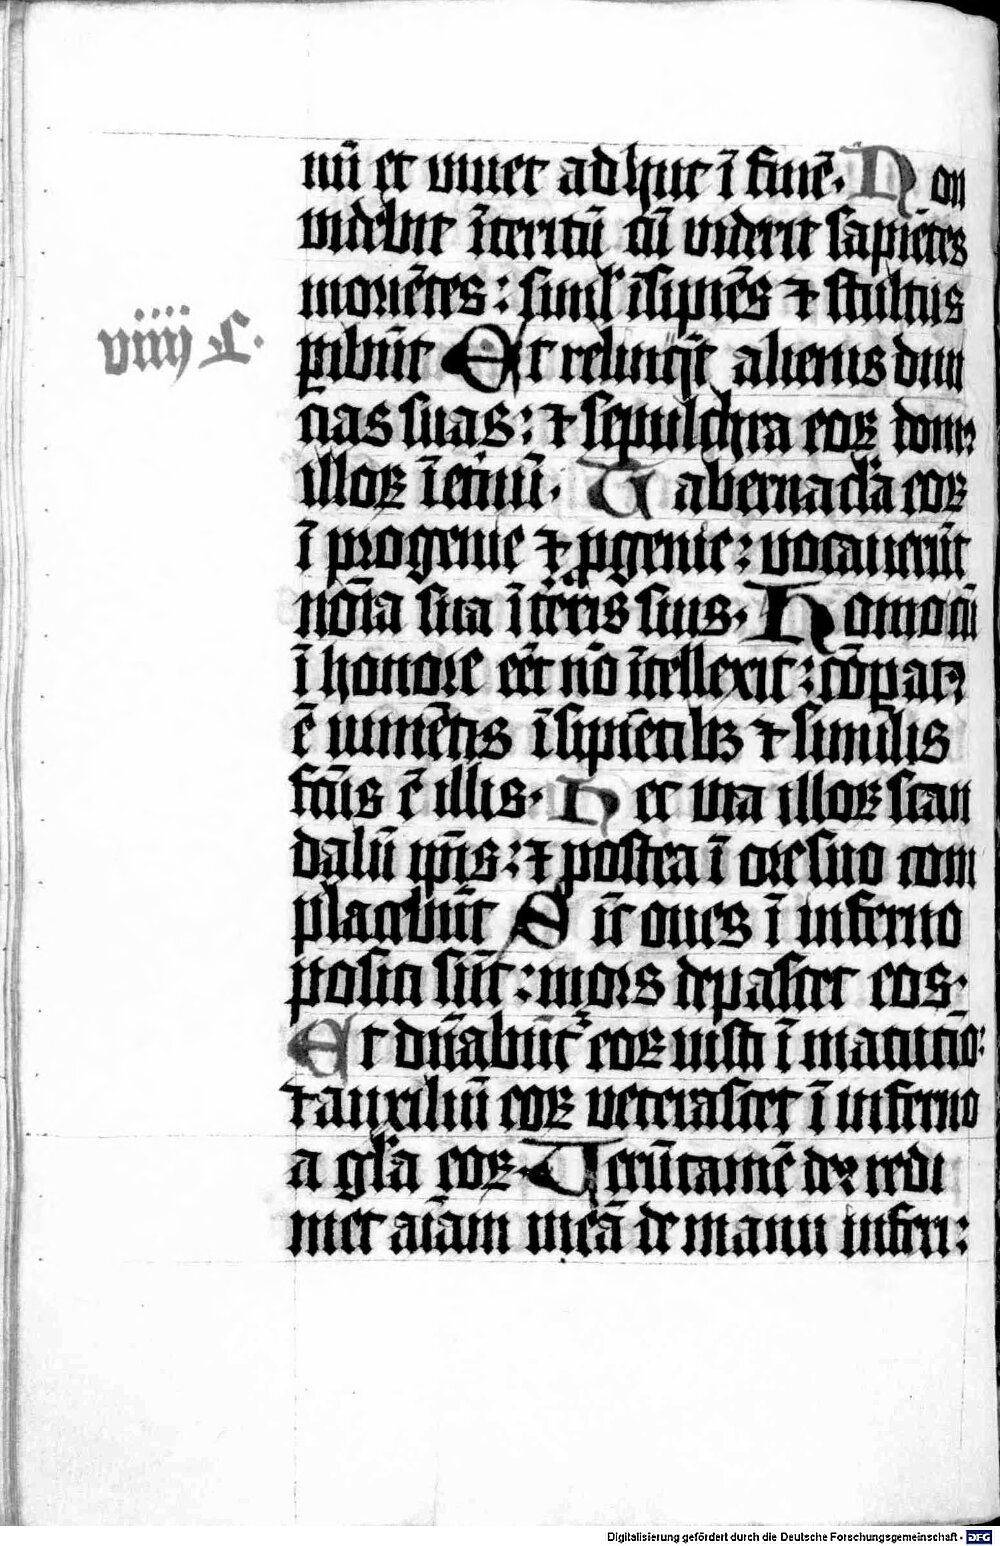 nū et viuet adhuc ī finē. Non
videbit īteritū cū viderit sapiētes
moriētes: simł īsipiēs ⁊ stultus
ꝑibūt Et relinq̄t alienis diui
cias suas: ⁊ sepulchra eoꝝ dom᷒
illoꝝ īet̄nū. Tabernacła eoꝝ
ī progenie ⁊ ꝓgenie: vocauerūt
nōīa sua ī terris suis. Homo cū
ī honore eēt nō ītellexit: cōparat᷒
ē iumētis īsipiētibꝫ ⁊ similis
fcūs ē illis. Hec via illoꝝ scan
dalū ip̄is: ⁊ postea ī ore suo com
placebūt Sic̄ oues ī inferno
positi sūt: mors depascet eos.
Et dn̄abūt᷑ eoꝝ iusti ī matutīo:
⁊ auxiliū eoꝝ veterascet ī inferno
a głia eoꝝ. Uerūtamē de᷒ redi
met aīam meā de manu inferi:
viiij L.
Digitalisierung gefördert durch die Deutsche Forschungsgemeinschaft - DFG